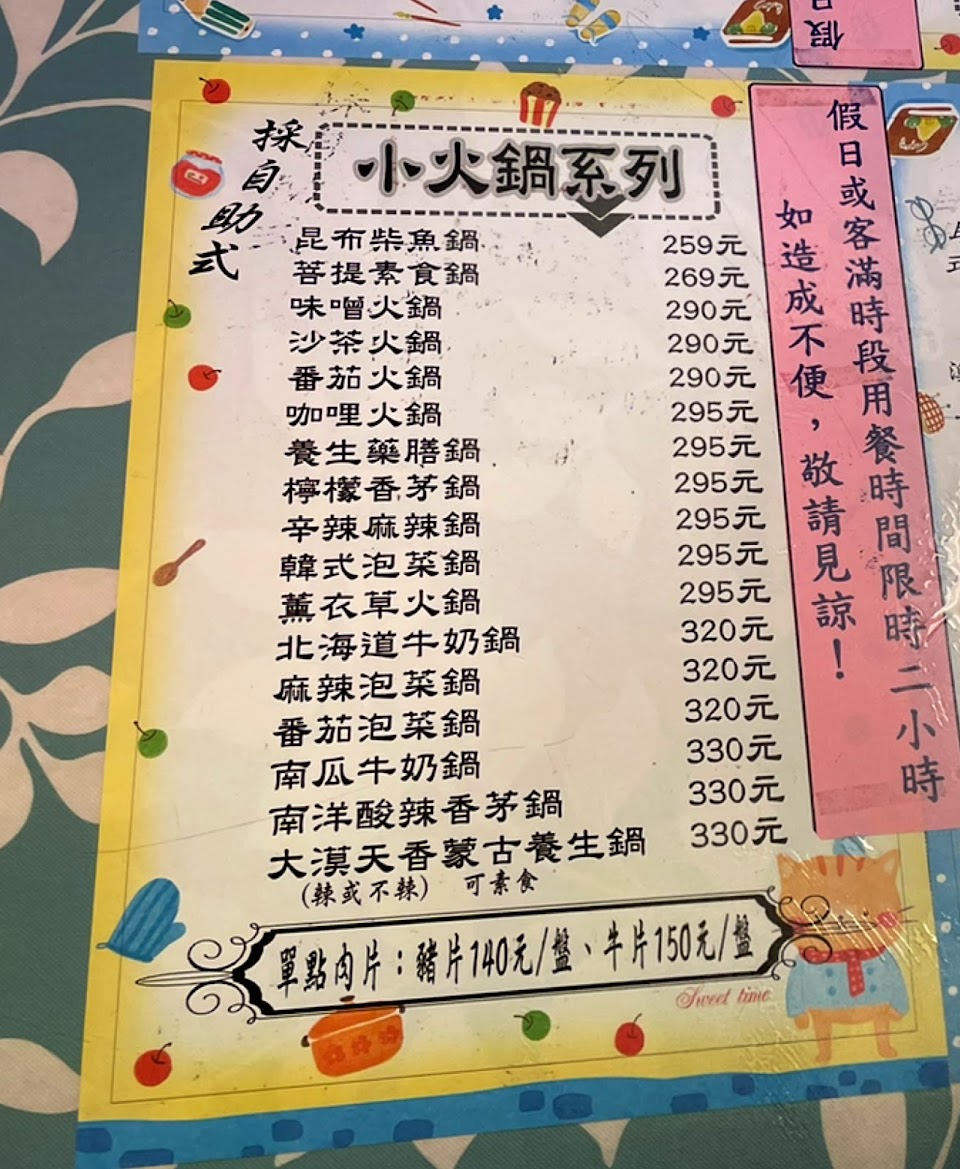 採自助式
小火鍋系列
昆布柴魚鍋 259元
菩提素食鍋 269元
味噌火鍋 290元
沙茶火鍋 290元
番茄火鍋 290元
咖哩火鍋 295元
養生藥膳鍋 295元
檸檬香茅鍋 295元
辛辣麻辣鍋 295元
韓式泡菜鍋 295元
薰衣草火鍋 295元
北海道牛奶鍋 320元
麻辣泡菜鍋 320元
番茄泡菜鍋 320元
南瓜牛奶鍋 330元
南洋酸辣香茅鍋 330元
大漠天香蒙古養生鍋 330元
(辣或不辣) 可素食
單點肉片：豬片140元/盤、牛片150元/盤
Sweet time
假日或客滿時段用餐時間限時二小時
如造成不便，敬請見諒！
假